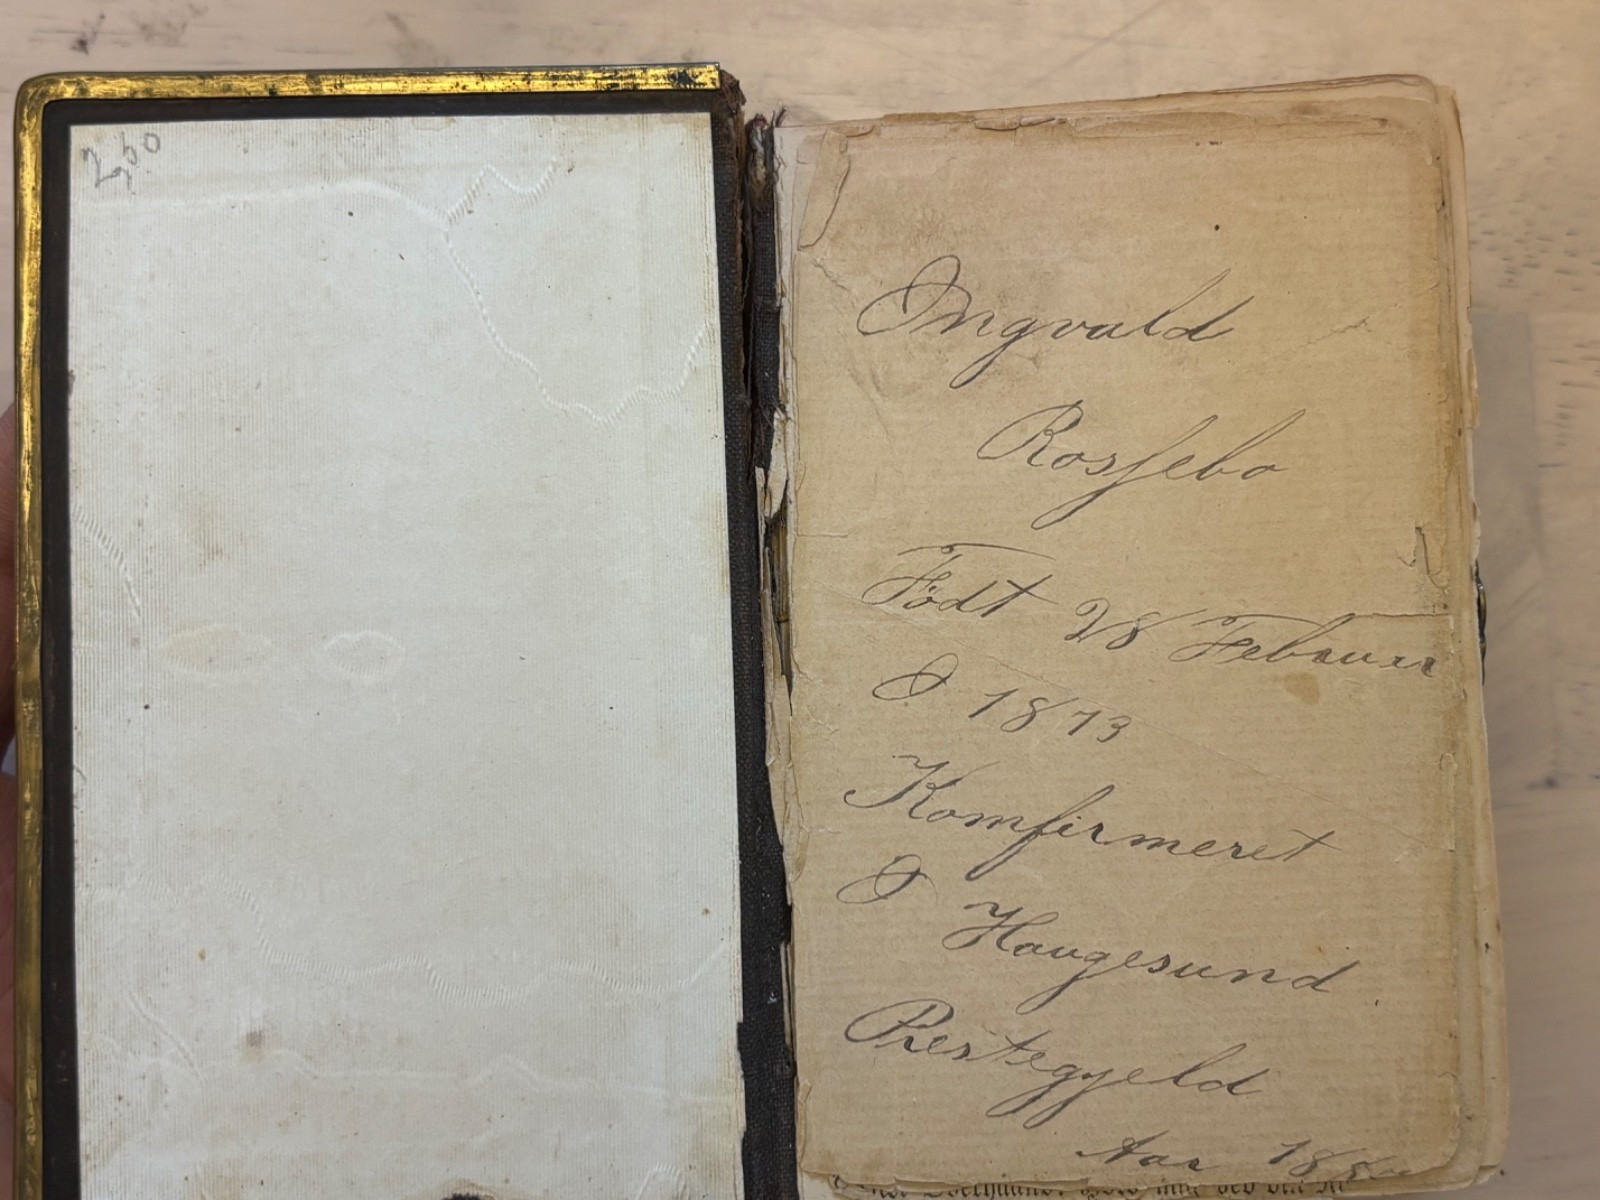 2,50
Ingvald
Rossebo
Födt 28 Febauar
I 1873
Komfirmeret
I Haugesund
Prestegjeld
Aar